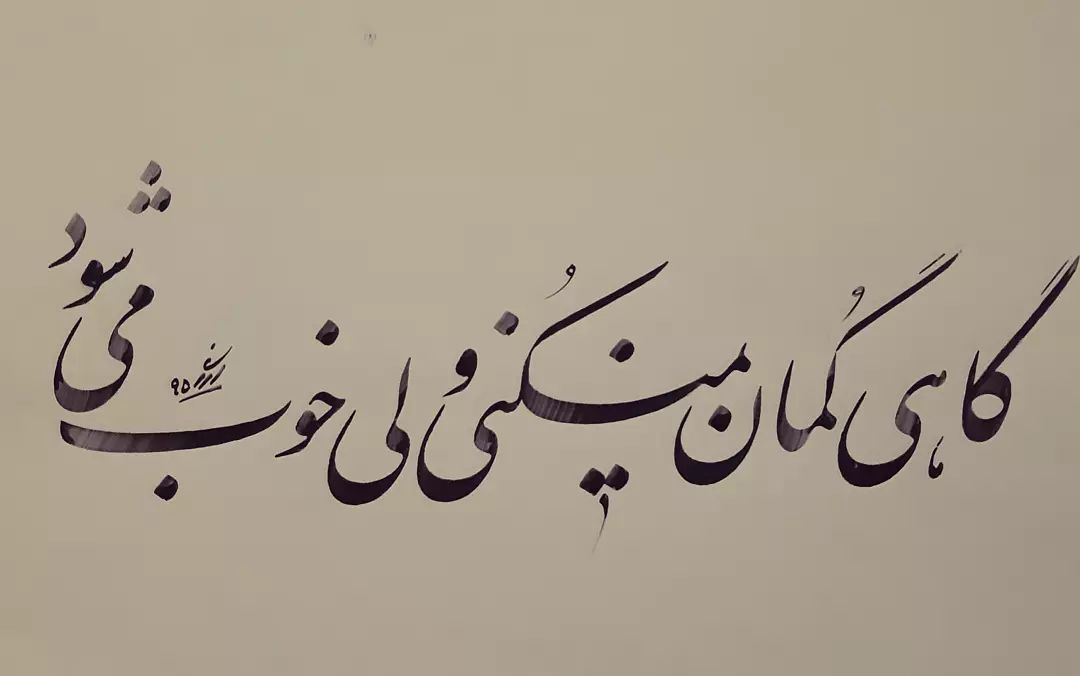 گاهی گُمان نمیکُنی ولی خوب می شود
۹۵